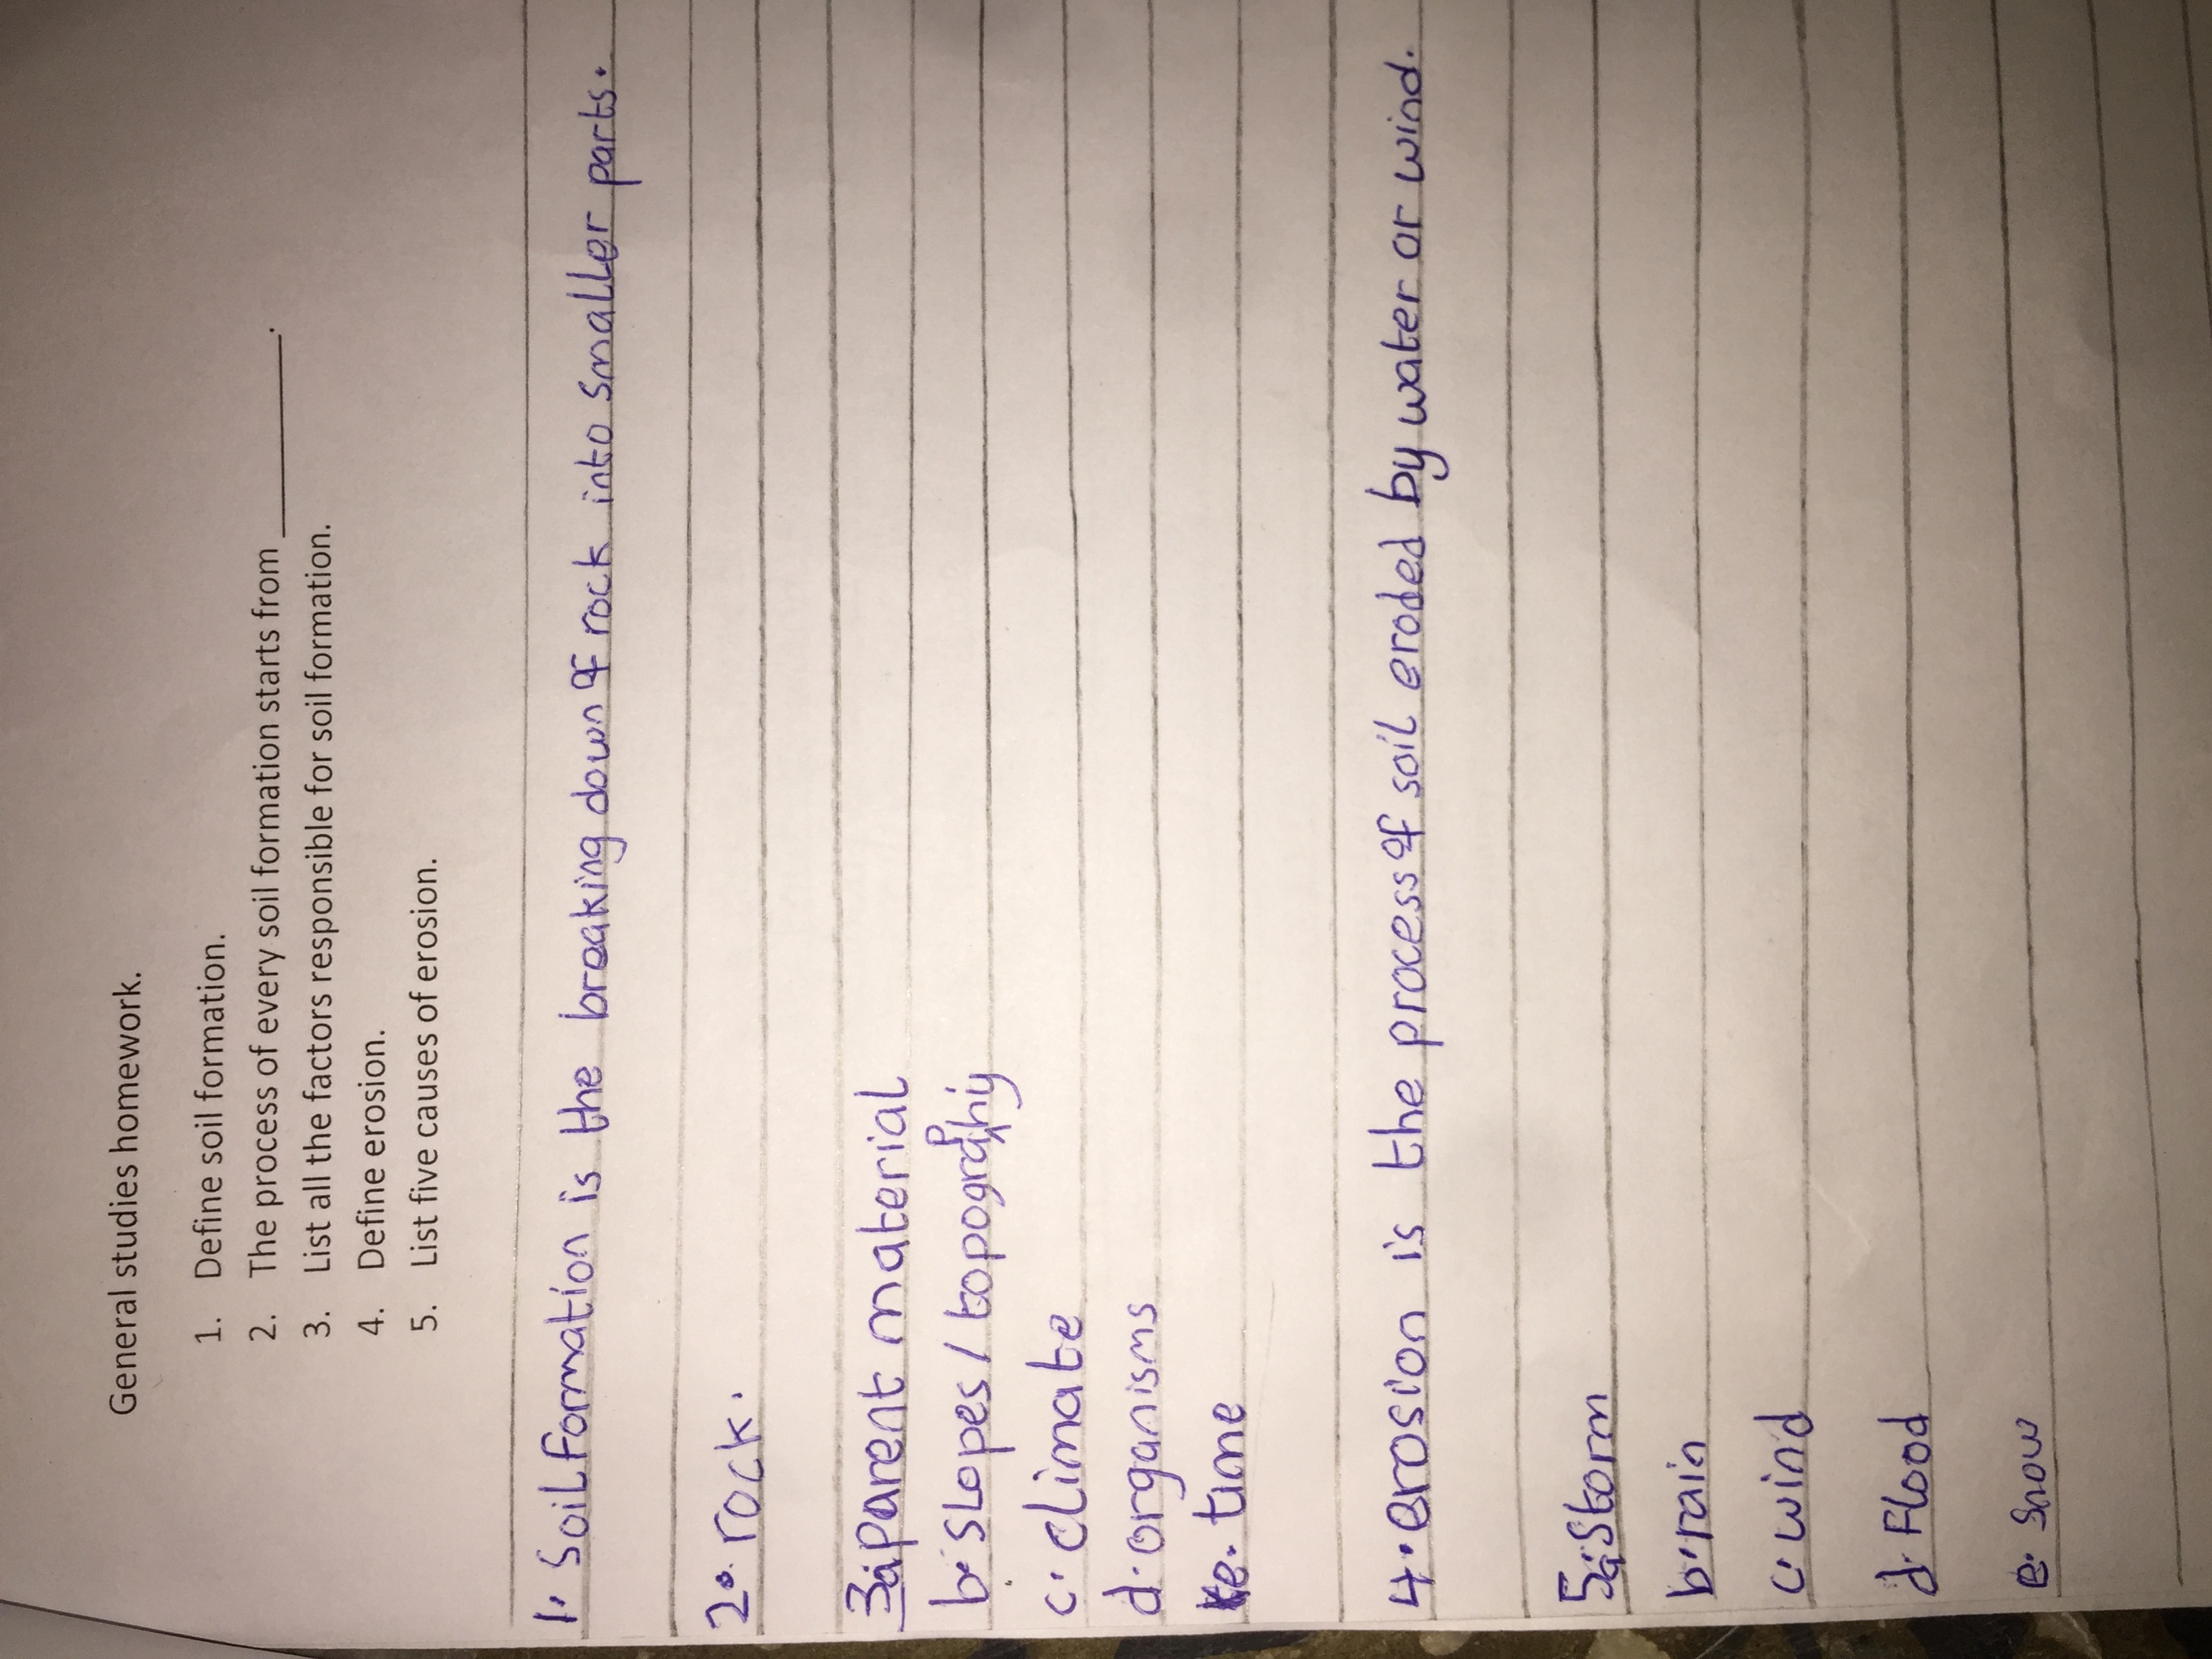 General studies homework.
1. Define soil formation.
2. The process of every soil formation starts from ________.
3. List all the factors responsible for soil formation.
4. Define erosion.
5. List five causes of erosion.
1. Soil formation is the breaking down of rock into smaller parts.
2. rock.
3a parent material
b. slopes / topography
c. climate
d. organisms
e. time
4. erosion is the process of soil eroded by water or wind.
5a. Storm
b. rain
c. wind
d. Flood
e. Snow